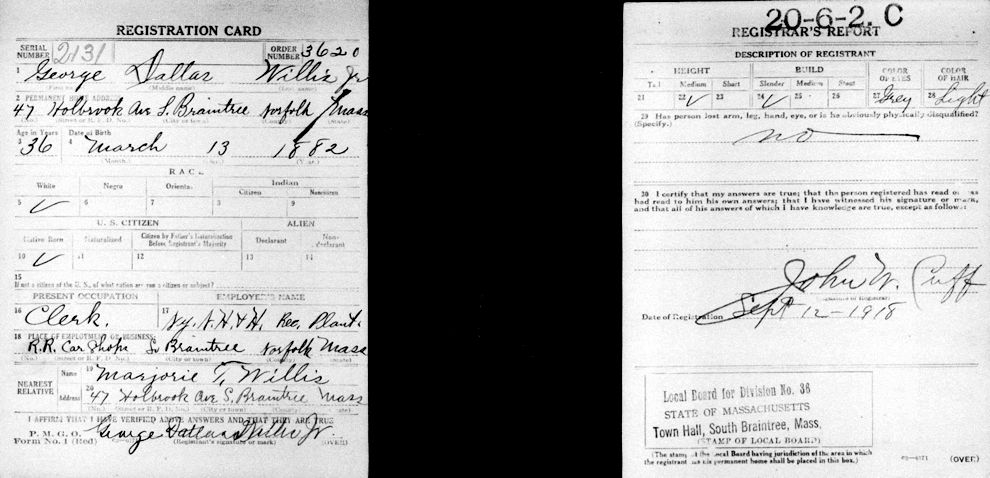 REGISTRATION CARD
SERIAL NUMBER 2131 ORDER NUMBER 3620
1 George Dallas Willis Jr
(Middle name) (Last name)
2 PERMANENT HOME ADDRESS
47 Holbrook Ave S. Braintree Norfolk Mass
(No.) (Street or R. F. D. No.) (City or town) (County) (State)
Age in Years Date of Birth
3 36 4 March 13 1882
(Month.) (Day.) (Year.)
RACE
White Negro Oriental Indian
Citizen Noncitizen
5 ✓ 6 7 8 9
U. S. CITIZEN ALIEN
Native Born Naturalized Citizen by Father's Naturalization Before Registrant's Majority Declarant Non-declarant
10 ✓ 11 12 13 14
15
If not a citizen of the U. S., of what nation are you a citizen or subject?
PRESENT OCCUPATION EMPLOYER'S NAME
16 Clerk. 17 N.y. N. H. & H. Rec. Plant.
18 PLACE OF EMPLOYMENT OR BUSINESS
R.R. Car Shops S. Braintree Norfolk Mass
(No.) (Street or R. F. D. No.) (City or town) (County) (State)
NEAREST RELATIVE
Name 19 Marjorie T. Willis
Address 20 47 Holbrook Ave S. Braintree Mass
(No.) (Street or R. F. D. No.) (City or town) (County) (State)
I AFFIRM THAT I HAVE VERIFIED ABOVE ANSWERS AND THAT THEY ARE TRUE
P. M. G. O.
Form No. 1 (Red) George Dallas Willis Jr.
(Registrant's signature or mark) (OVER)
20-6-2. C
REGISTRAR'S REPORT
DESCRIPTION OF REGISTRANT
HEIGHT BUILD COLOR OF EYES COLOR OF HAIR
Tall Medium Short Slender Medium Stout
21 22 ✓ 23 24 ✓ 25 26 27 Grey 28 Light
29 Has person lost arm, leg, hand, eye, or is he obviously physically disqualified?
(Specify.)
no
30 I certify that my answers are true; that the person registered has read or has
had read to him his own answers; that I have witnessed his signature or mark,
and that all of his answers of which I have knowledge are true, except as follows:
John W. Cuff
(Signature of Registrar)
Date of Registration Sept 12-1918
Local Board for Division No. 36
STATE OF MASSACHUSETTS
Town Hall, South Braintree, Mass.
(STAMP OF LOCAL BOARD)
(The stamp of the Local Board having jurisdiction of the area in which
the registrant has his permanent home shall be placed in this box.)
(OVER)